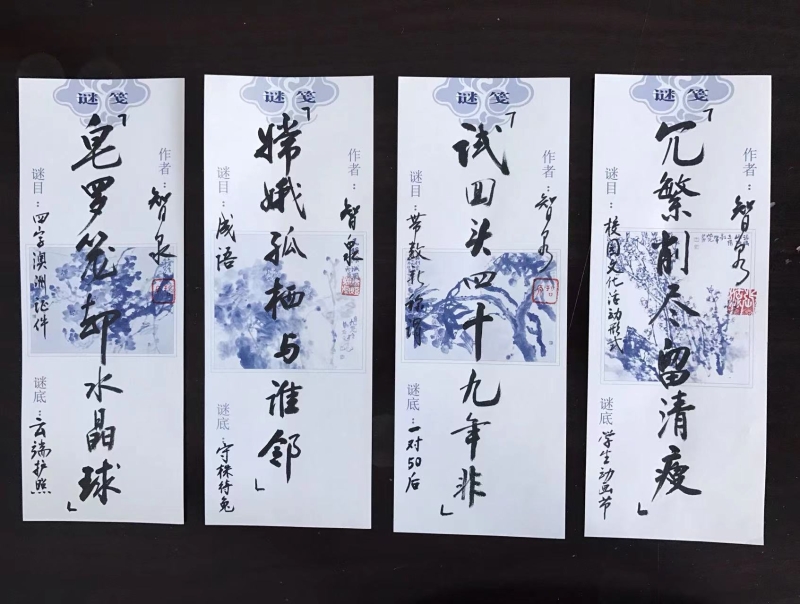 谜笺
作者：智泉
「皂罗笼却水晶球」
谜目：四字澳洲证件
谜底：云端护照
谜笺
作者：智泉
「嫦娥孤栖与谁邻」
谜目：成语
谜底：守株待兔
谜笺
作者：智泉
「试回头四十九年非」
谜目：带数称谓
谜底：一对50后
谜笺
作者：智泉
「冗繁削尽留清瘦」
谜目：校园文化活动形式
谜底：学生动画节